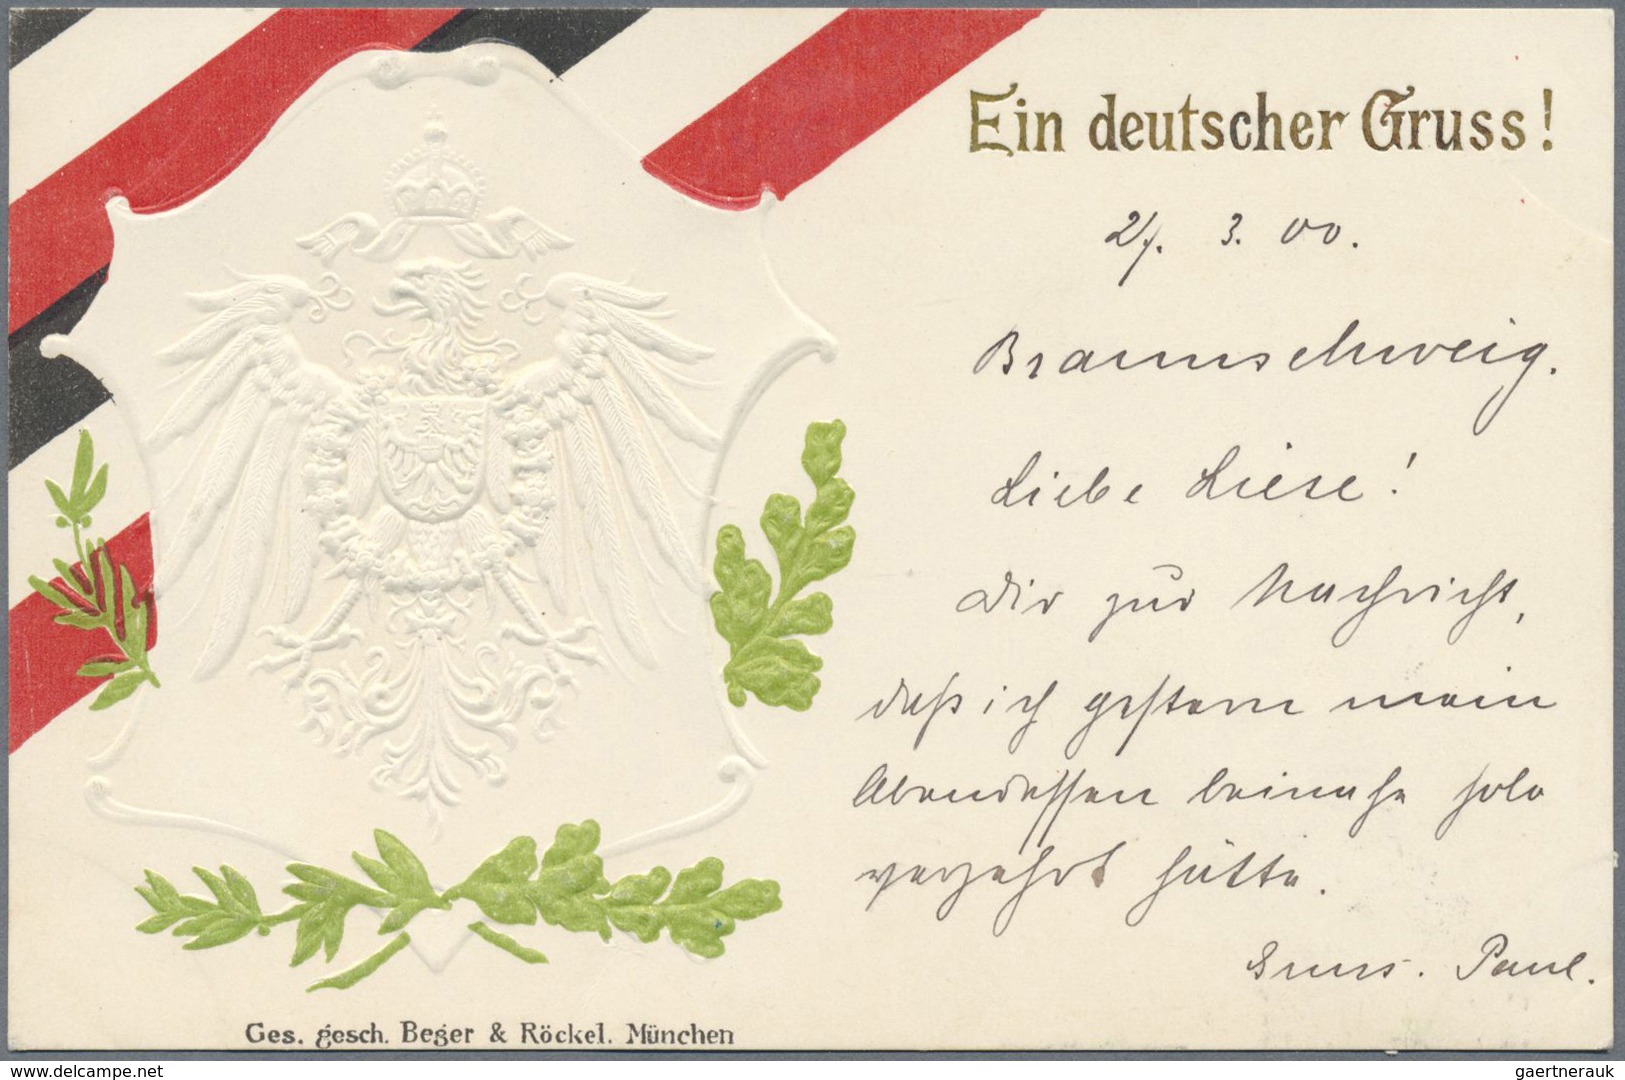 Ein deutscher Gruss!
27. 3. 00.
Braunschweig.
Liebe Liese!
Dir zur Nachricht,
daß ich gestern mein
Abendessen beinahe solo
verzehrt hätte.
Gruss. Paul.
Ges. gesch. Beger & Röckel. München
www.delcampe.net
gaertnerauk